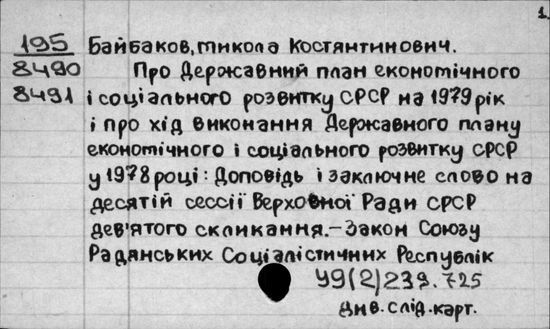 1.
195 Байбаков, Микола Костянтинович.
8490 Про Державний план економічного
8491 і соціального розвитку СРСР на 1979 рік
і про хід виконання Державного плану
економічного і соціального розвитку СРСР
у 1978 році: Доповідь і заключне слово на
десятій сессії Верховної Ради СРСР
дев'ятого скликання.-Закон Союзу
Радянських Соціалістичних Республік
У9(2)239.725
див. слід. карт.